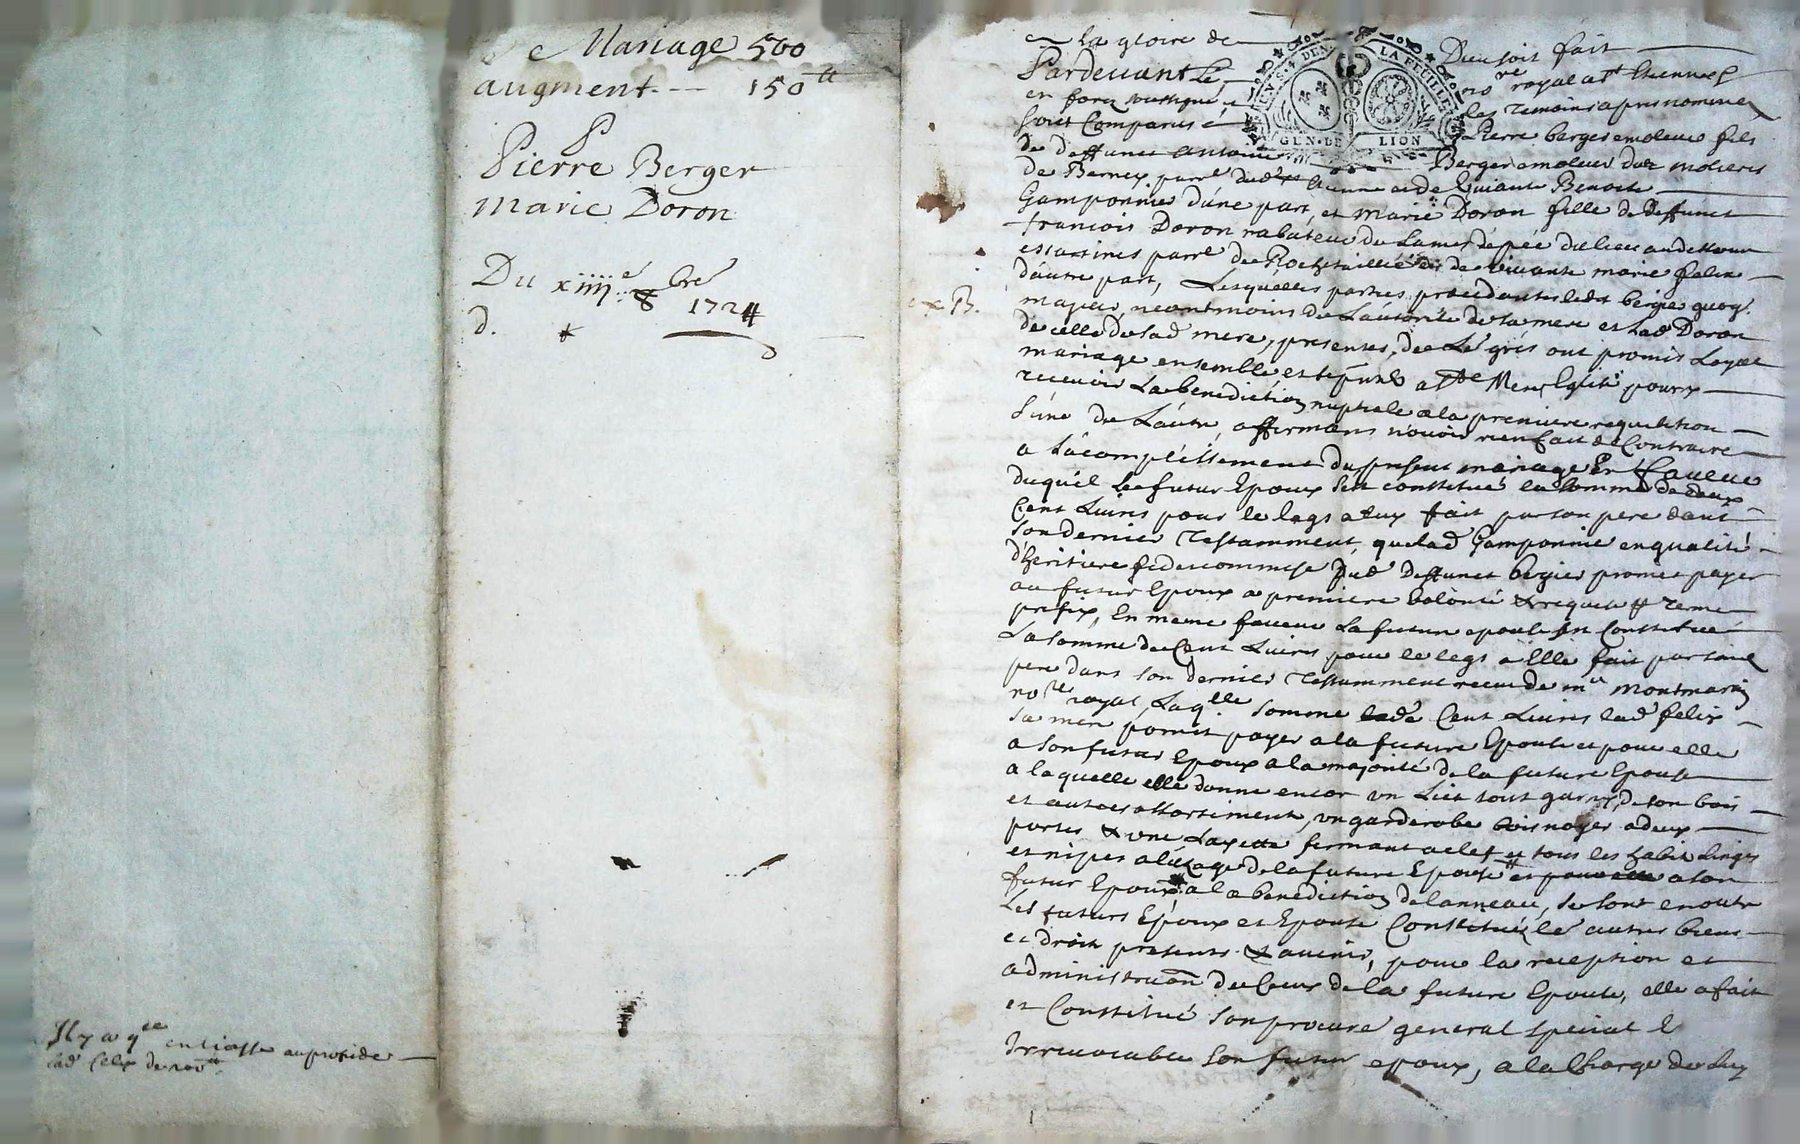 Mariage 500
augment. -- 150 tt
Pierre Berger
Marie Doron
Du xiiii.e 8 bre
1724
d.
Il y a q.ce en liasse au proffide
lad. Celix de 100 tt
a la gloire de Dieu soit fait
Pardevant le no.re royal a St Etienne
en forez soussigné les temoins apres nommez
Soit Comparus Pierre berger emoleur fils
de deffunct Antoine Berger emoleur du molieres
de Berney parr.e dud. St Etienne et de vivante Benoite
Gamponnie d'une part, et Marie Doron fille de deffunct
francois Doron rabateur de Lames d'épée du lieu
essartines parr.e de Rochetaillié et de vivante marie felix
d'autre part, Lesquelles parties procedantes led. bergier quoq.
majeur, neantmoins de Lautorité de sa mere et lad. Doron
de celle de lad. mere, presentes, de Lé gres ont promis Loyal
mariage ensemble et s'épouser a Ste Mere Eglise pour y
recevoir La benediction nuptiale a la premiere requisition
l'une de L'autre, affirmans n'avoir rien fait de Contraire
a L'acomplissement du present mariage En faveur
duquél Le futur Epoux s'est constitué la somme de deux
Cent Livres pour le legs a luy fait par son pere dans
son dernier Testamment, que lad. Gamponnie en qualité
d'héritiere fideicommise dud. deffunct bergier promet payer
au futur Epoux a premiere volonté & requete # terme
prefix, En meme faveur La future epouse s'est Constitué
La somme de Cent Livres pour le legs a Elle fait par sond.
pere dans son dernier Testamment receu de m.e montmartin
no.re royal, Laq.lle somme de Cent Livres lad. felix
sa mere promet payer a la future Epouse et pour elle
a son futur Epoux a la majorité de la future Epouse
a laquelle elle donne encor un Lict tout garny, de son bois
et autres assortiment, un garderobe bois noyer a deux
portes & une Layette fermant a clef et tous les habit Linges
et nipes a l'usage de la future Epouse et pour elle a son
futur Epoux a la benediction de l'anneau, se sont en outre
Les futurs Epoux et Epouse Constitués lé autres biens
et droits presents & avenir, pour la reception et
administraôn de Ceux de la future Epouse, elle a fait
et Constitué son procure general special &
Irrevocable son futur epoux, a la Charge de luy
GEN·DE LION
LA FEUILLE